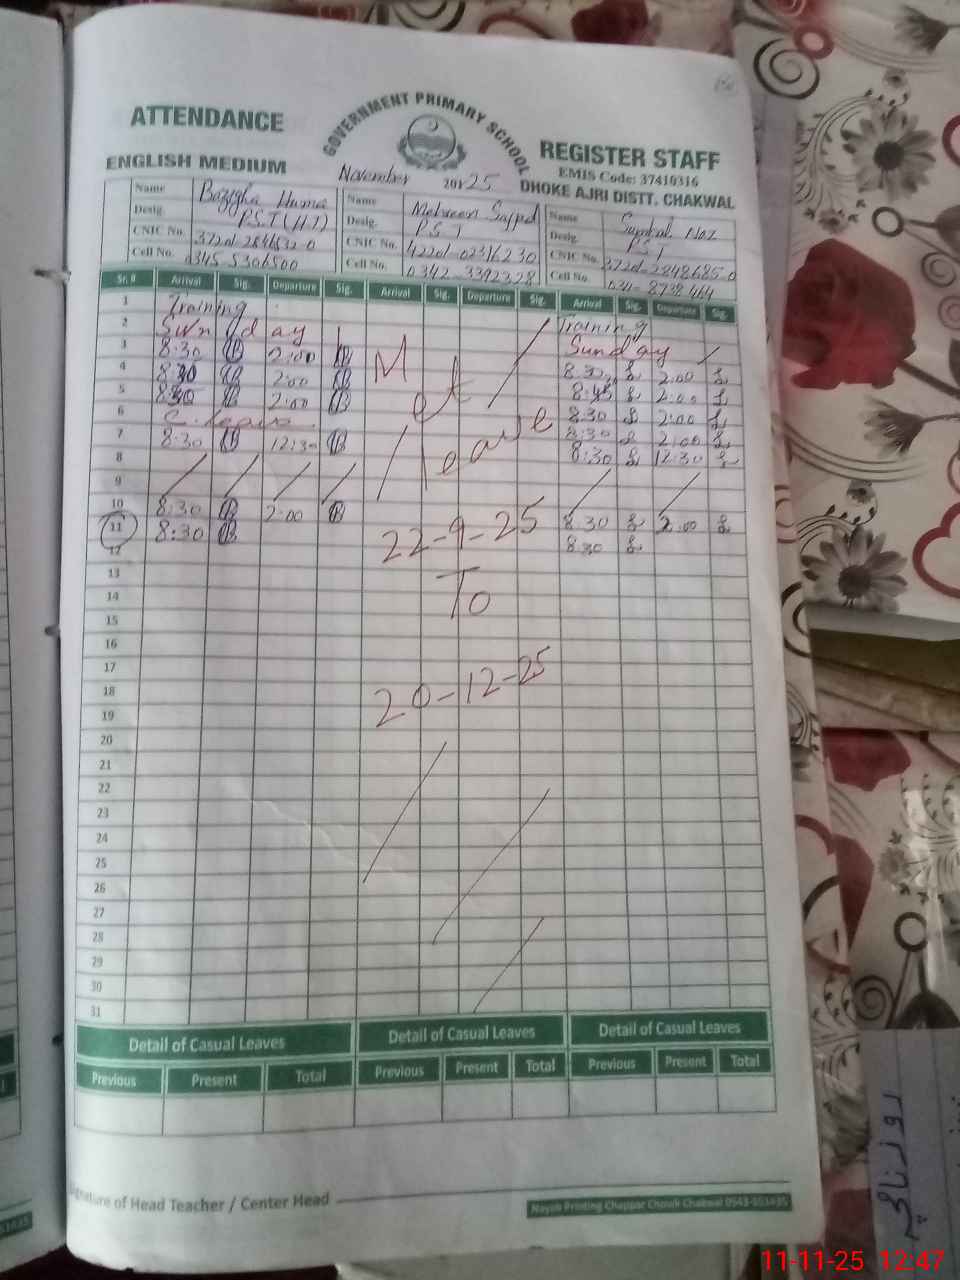 ATTENDANCE
GOVERNMENT PRIMARY SCHOOL
REGISTER STAFF
ENGLISH MEDIUM
EMIS Code: 37410316
November 2025
DHOKE AJRI DISTT. CHAKWAL
Name Huma Name Mehreen Sajjad Name Naz
Desig. P.S.T (H.T) Desig. P.S.T Desig. PST
CNIC No. CNIC No. CNIC No.
Cell No. Cell No. 0342-3392328 Cell No.
Sr. # Arrival Sig. Departure Sig. Arrival Sig. Departure Sig. Arrival Sig. Departure Sig.
1 Training Training
2 Sunday Sunday
3 8:30 2:00 8:30 2:00
4 8:30 2:00 8:45 2:00
5 8:30 2:00 8:30 2:00
6 C. leave 8:30 2:00
7 8:30 12:30 8:30 12:30
Leave
8
9
10 8:30 2:00 8:30 2:00
11 8:30 8:30
22-9-25
12
13
To
14
15
16
17
18
20-12-25
19
20
21
22
23
24
25
26
27
28
29
30
31
Detail of Casual Leaves Detail of Casual Leaves Detail of Casual Leaves
Previous Present Total Previous Present Total Previous Present Total
Signature of Head Teacher / Center Head
Nayab Printing Chappar Chowk Chakwal 0543-553435
روزنامچہ
11-11-25 12:47